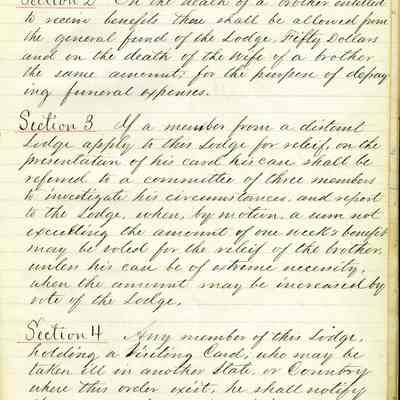 Section 2 On the death of a brother entitled
to receive benefits there shall be allowed from
the general fund of the Lodge, Fifty Dollars
and on the death of the Wife of a brother
the same amount; for the purpose of defray
ing funeral expenses.
Section 3 If a member from a distant
Lodge apply to this Lodge for relief, on the
presentation of his card his case shall be
referred to a committee of three members
to investigate his circumstances, and report
to the Lodge, when, by motion, a sum not
exceeding the amount of one week's benefit
may be voted for the relief of the brother,
unless his case be of extreme necessity,
when the amount may be increased by
vote of the Lodge.
Section 4 Any member of this Lodge,
holding a Visiting Card, who may be
taken ill in another State, or Country
where this order exist, he shall notify